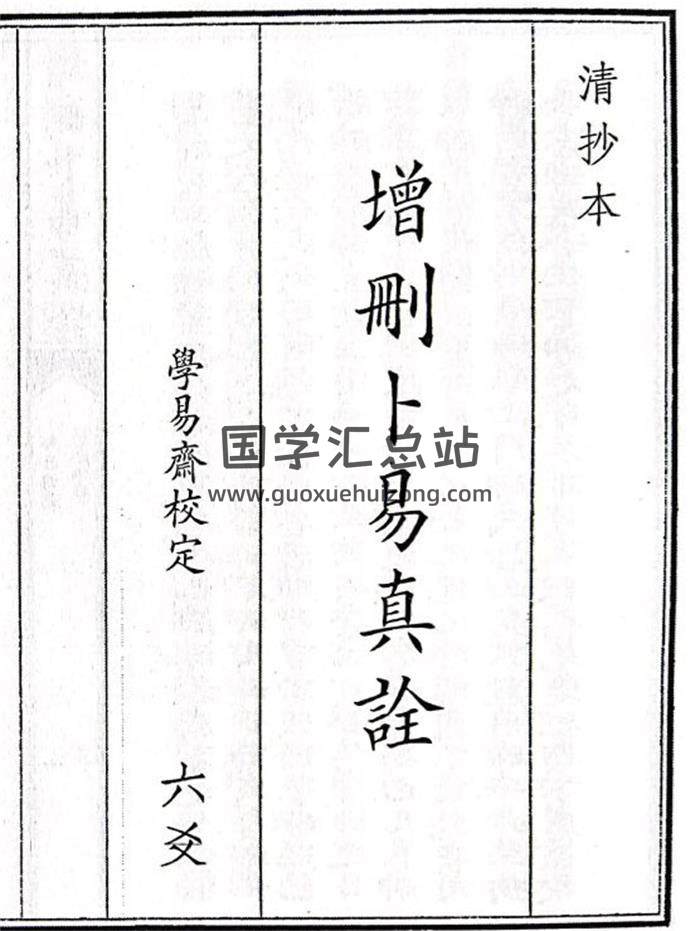 清抄本
增刪卜易真詮
學易齋校定
六爻
国学汇总站
www.guoxuehuizong.com